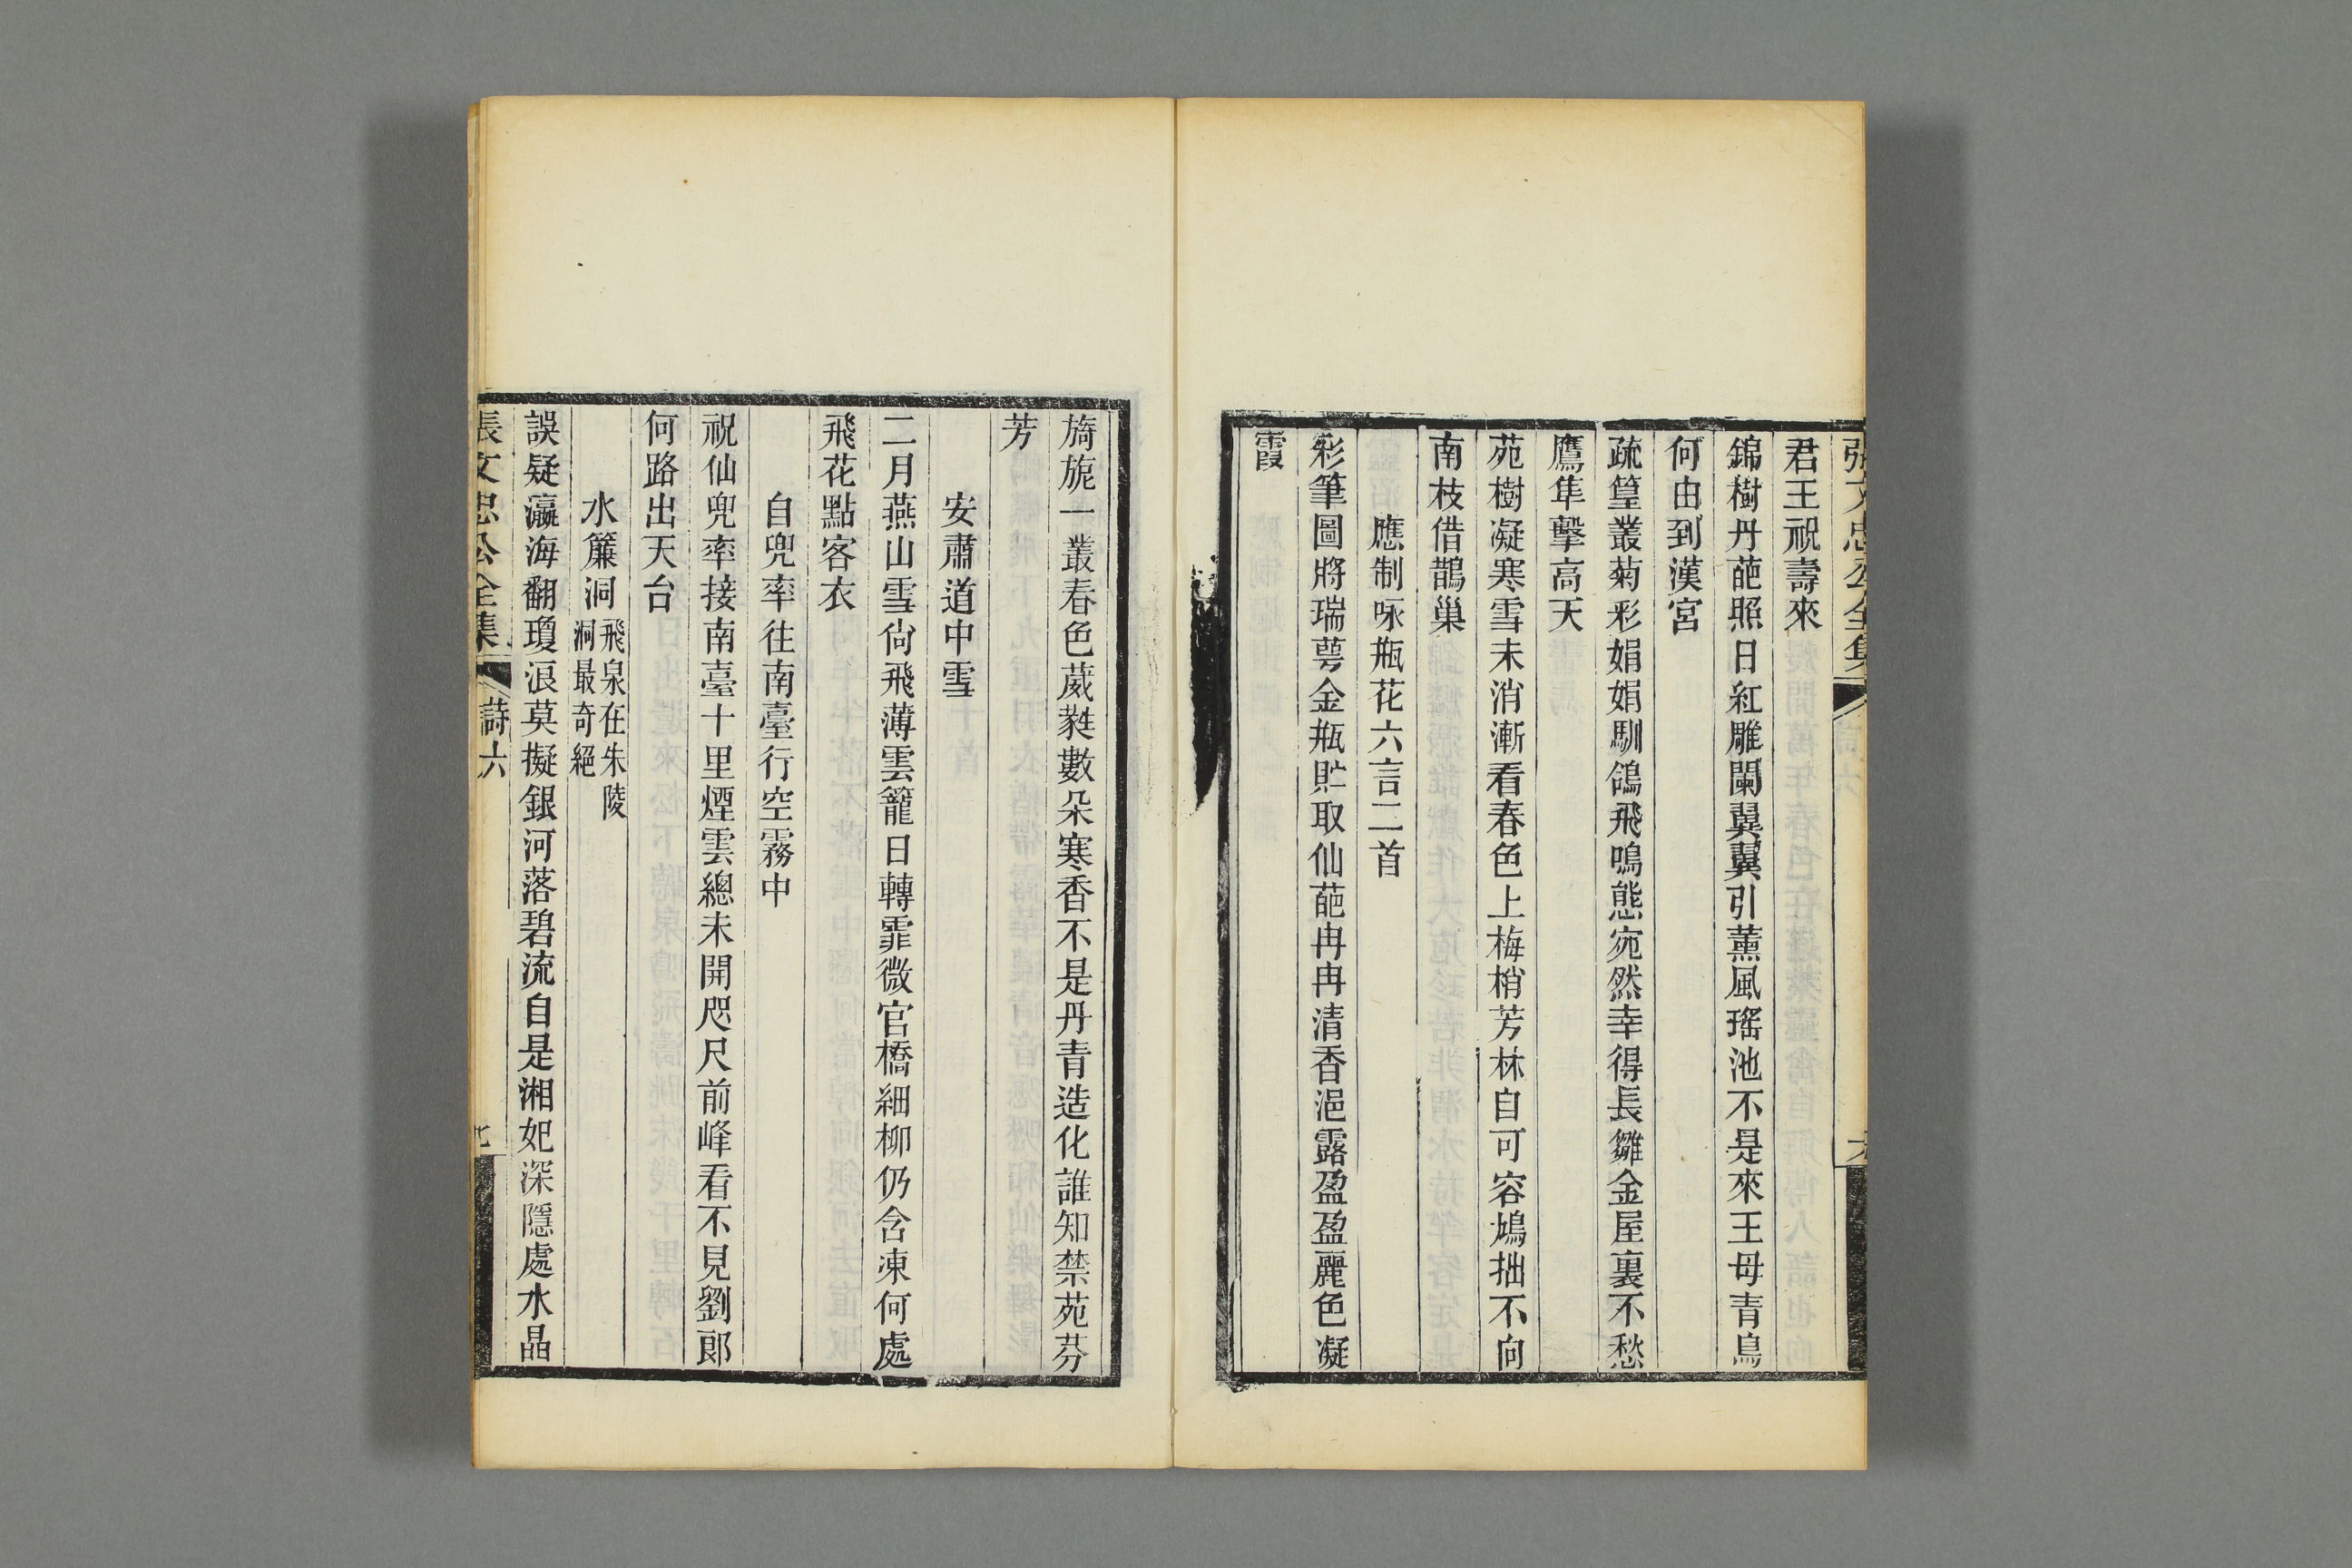 張文忠公全集
詩六
君王祝壽來
錦樹丹葩照日紅雕闌翼翼引薰風瑤池不是來王母青鳥
何由到漢宮
疏篁叢菊彩娟娟馴鴿飛鳴態宛然幸得長雛金屋裏不愁
鷹隼擊高天
苑樹凝寒雪未消漸看春色上梅梢芳林自可容鳩拙不向
南枝借鵲巢
應制咏瓶花六言二首
彩筆圖將瑞萼金瓶貯取仙葩冉冉清香浥露盈盈麗色凝
霞
旖旎一叢春色葳蕤數朵寒香不是丹青造化誰知禁苑芬
芳
安肅道中雪
二月燕山雪尙飛薄雲籠日轉霏微官橋細柳仍含凍何處
飛花點客衣
自兜率往南臺行空霧中
祝仙兜率接南臺十里煙雲總未開咫尺前峰看不見劉郞
何路出天台
水簾洞飛泉在朱陵
洞最奇絕
誤疑瀛海翻瓊浪莫擬銀河落碧流自是湘妃深隱處水晶
張文忠公全集
詩六